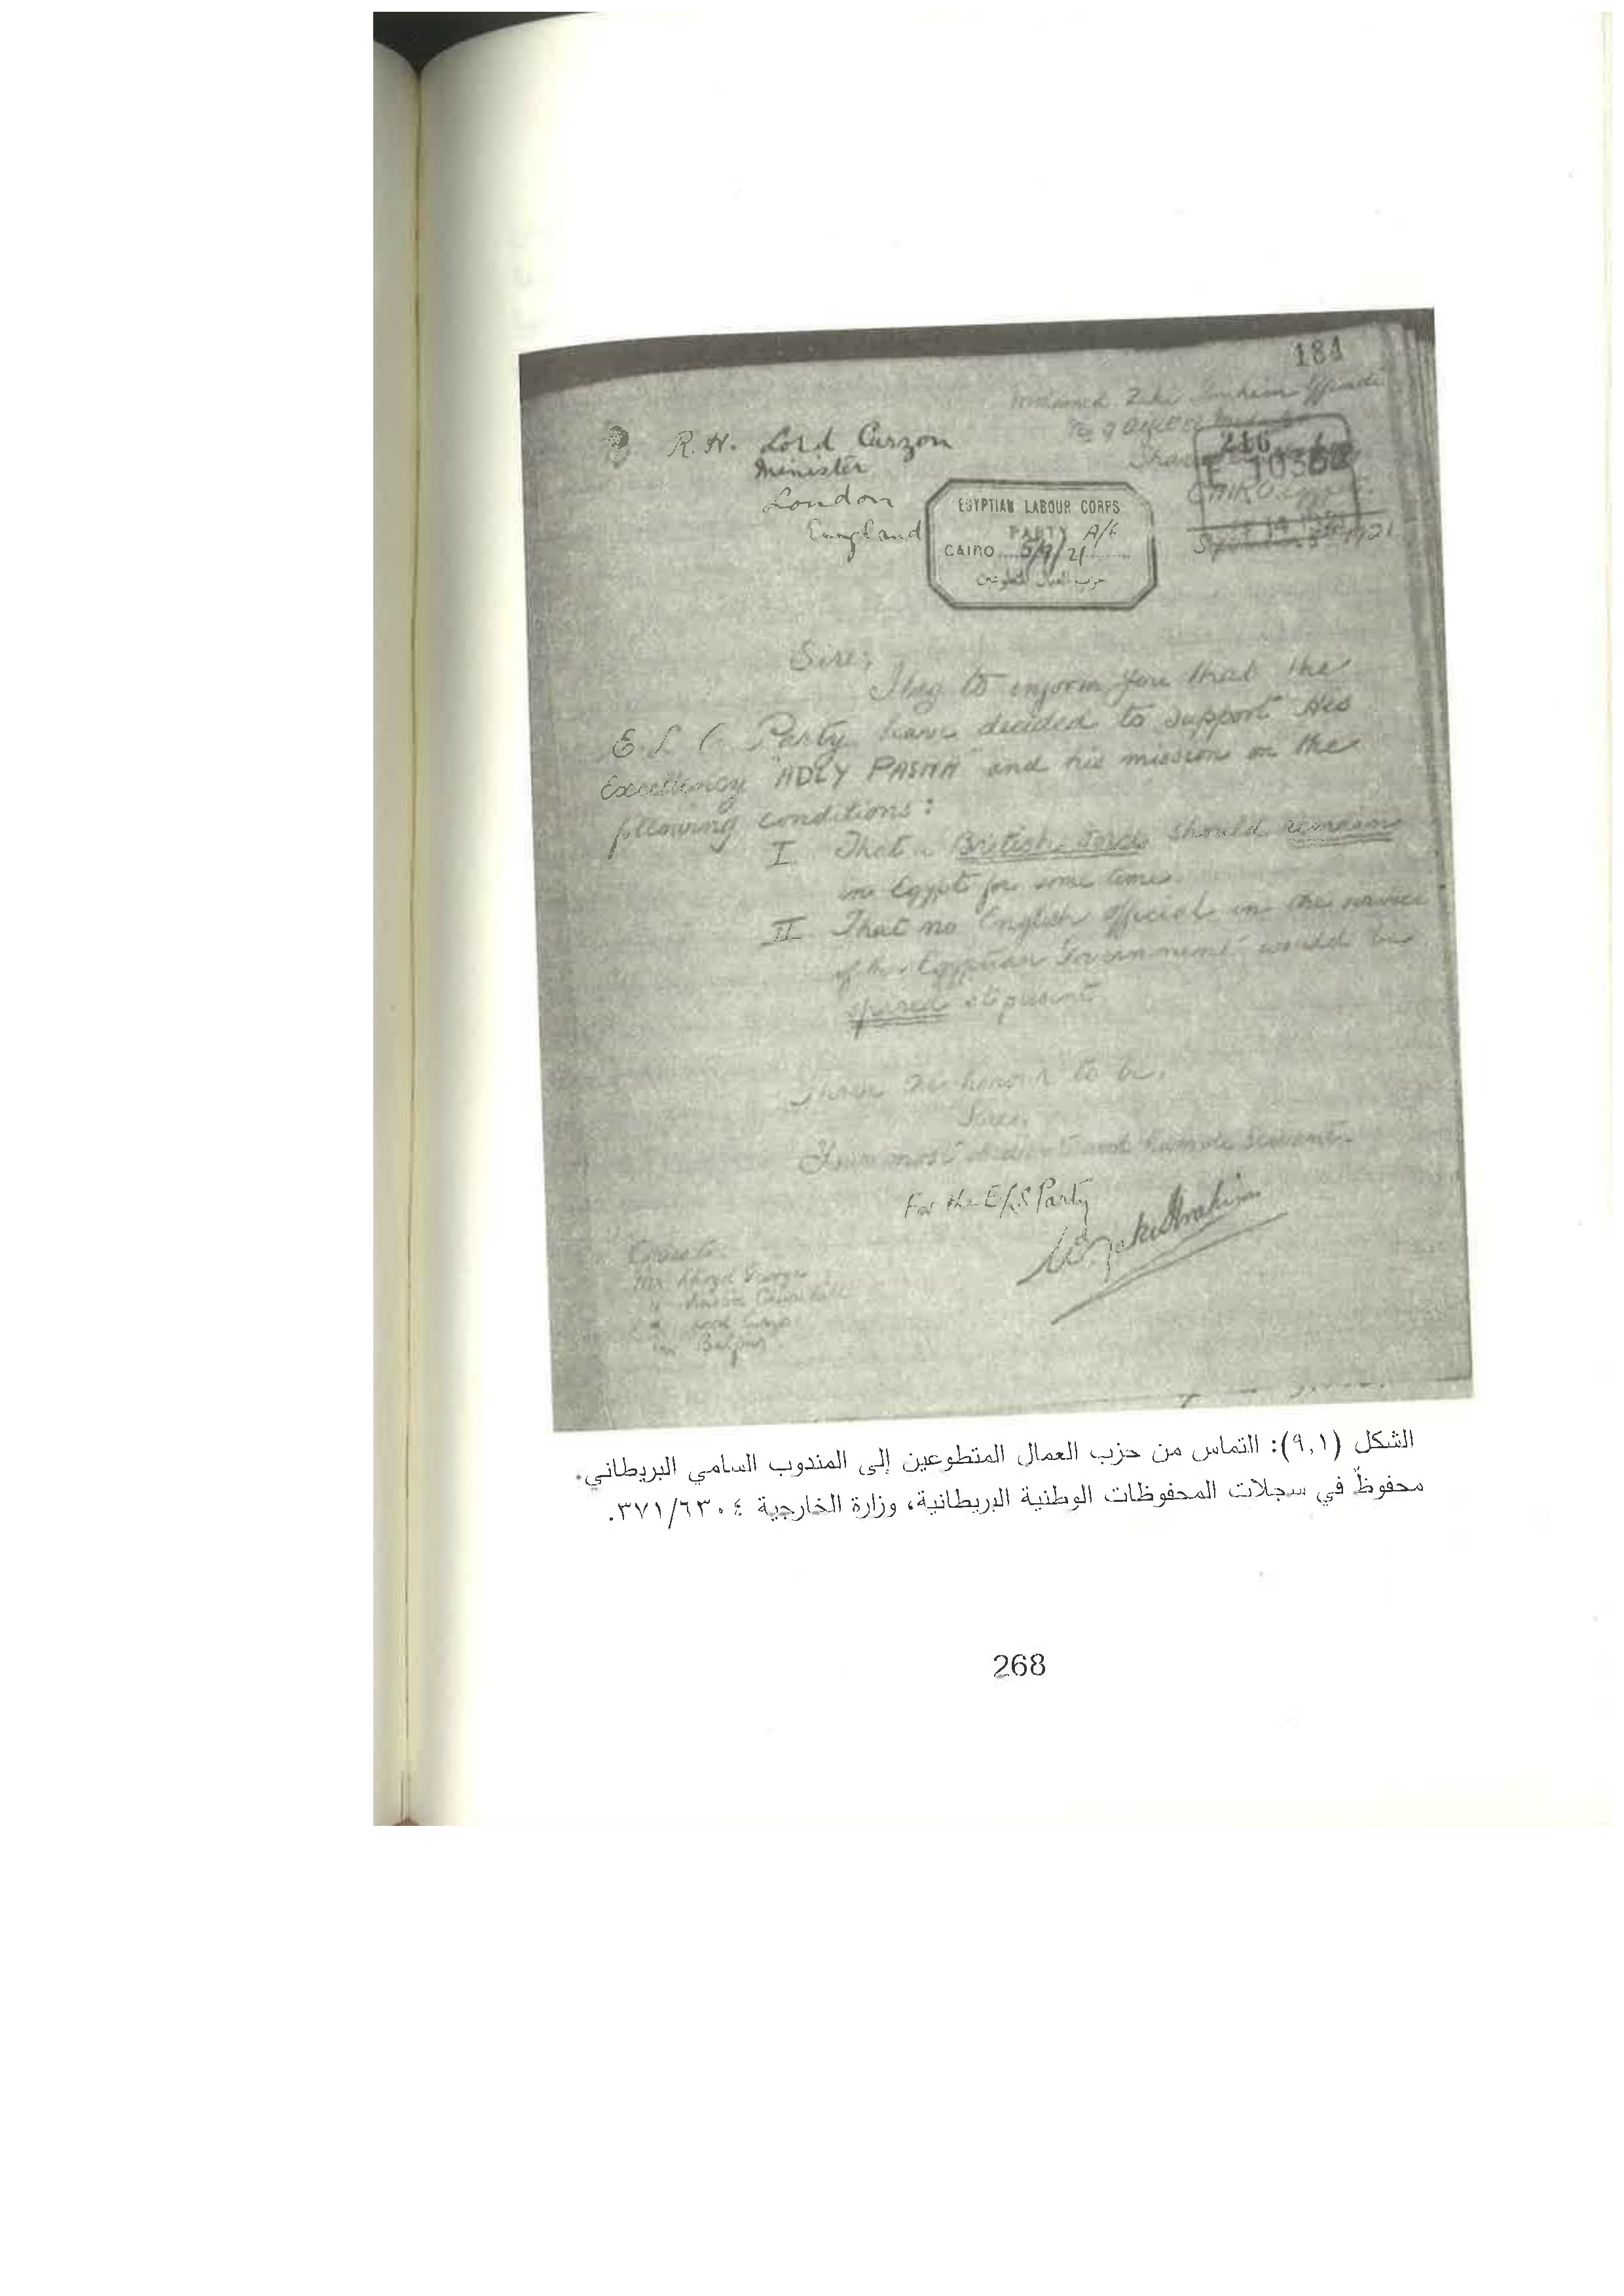 184
Mohamed Zaki Ibrahim Effendi
R. H. Lord Curzon
Minister
London
England
216
E 10362
CAIRO
1921
EGYPTIAN LABOUR CORPS
PARTY A/6
CAIRO 5/9/21
حزب العمال المتطوعين
Sire;
I beg to inform you that the
E. L. C. Party have decided to support His
Excellency "ADLY PASHA" and his mission on the
following conditions:
I That a British force should remain
in Egypt for some time.
II That no English official in the service
of the Egyptian Government would be
spared at present.
I have the honour to be,
Sire,
Your most obedient and humble servant.
For the E.L.C Party
Md. Zaki Ibrahim
Copies to:
Mr Lloyd George
" Churchill
" Lord
Balfour
الشكل (٩,١): التماس من حزب العمال المتطوعين إلى المندوب السامي البريطاني.
محفوظٌ في سجلات المحفوظات الوطنية البريطانية، وزارة الخارجية ٣٧١/٦٣٠٤.
268